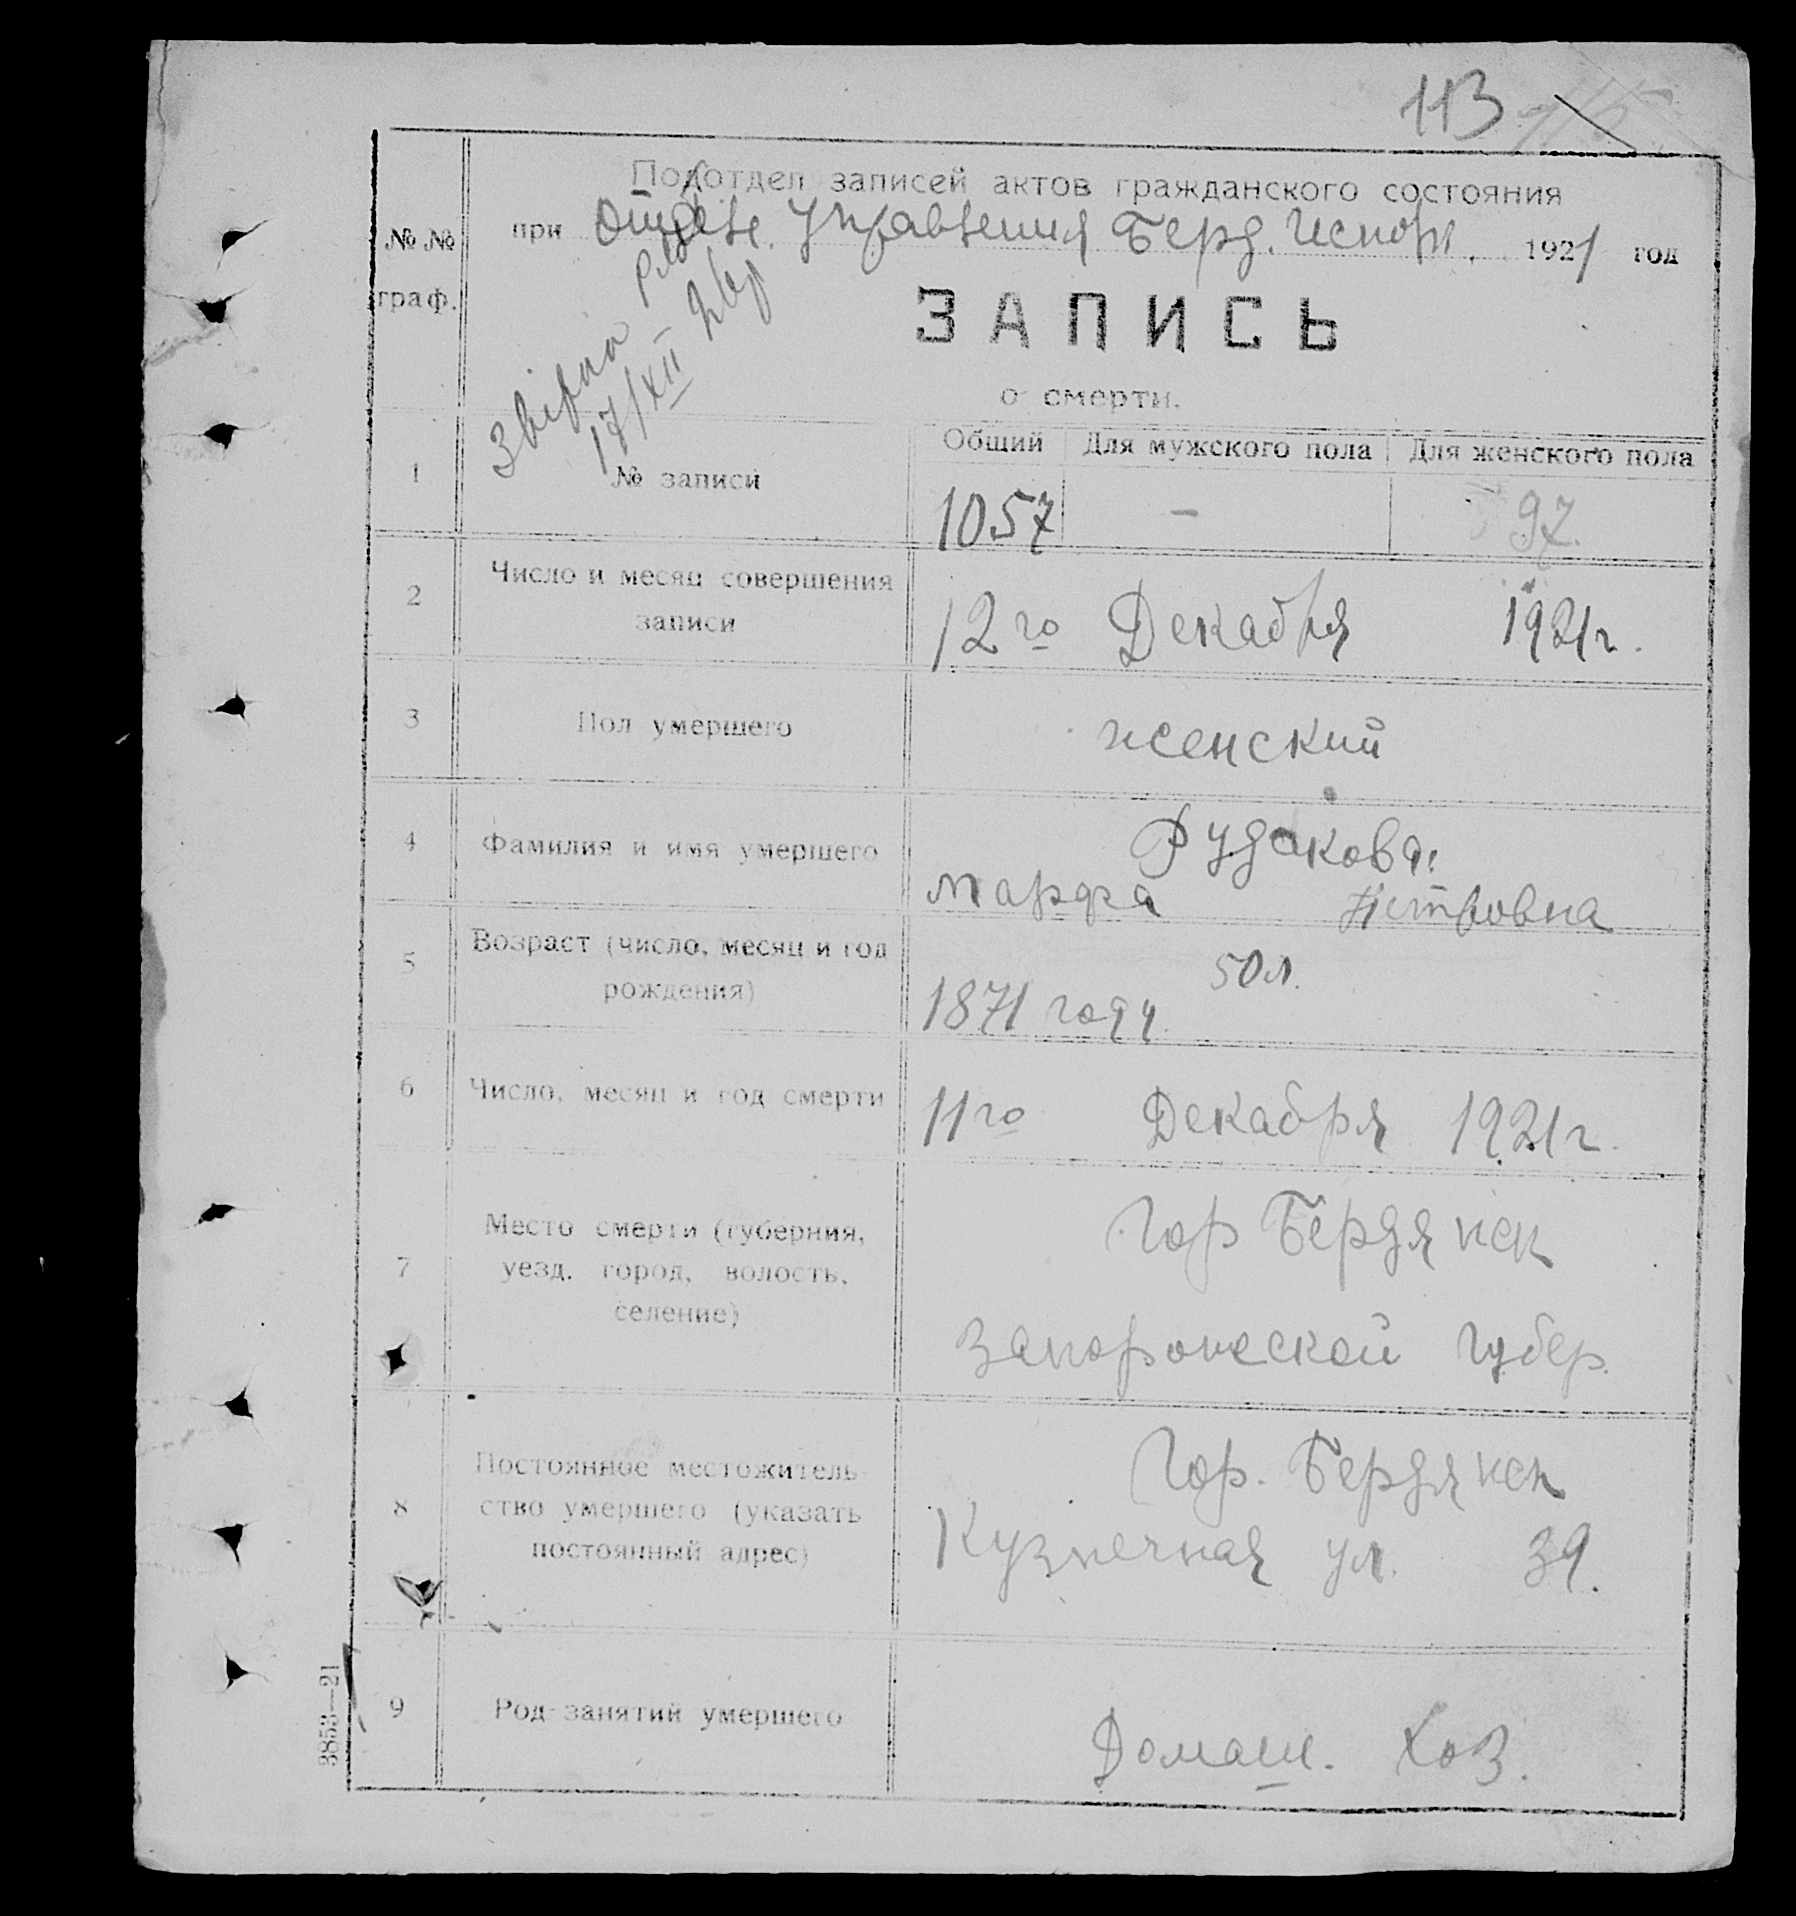 113
Подотдел записей актов гражданского состояния
при Отделе Управления Берд. Исполк. 1921 год
№№
граф.
ЗАПИСЬ
о смерти.
17/XII
Общий Для мужского пола Для женского пола
1 № записи 1057 - 97
2 Число и месяц совершения
записи
12го Декабря 1921г.
3 Пол умершего женский
4 Фамилия и имя умершего Рудакова
Марфа Петровна
5 Возраст (число, месяц и год
рождения)
50 л.
1871 году
6 Число, месяц и год смерти 11го Декабря 1921г.
7 Место смерти (губерния,
уезд, город, волость,
селение)
Гор Бердянск
Запорожской губер.
8 Постоянное местожитель-
ство умершего (указать
постоянный адрес)
Гор. Бердянск
Кузнечная ул. 39.
9 Род занятий умершего Домаш. Хоз.
3853—21